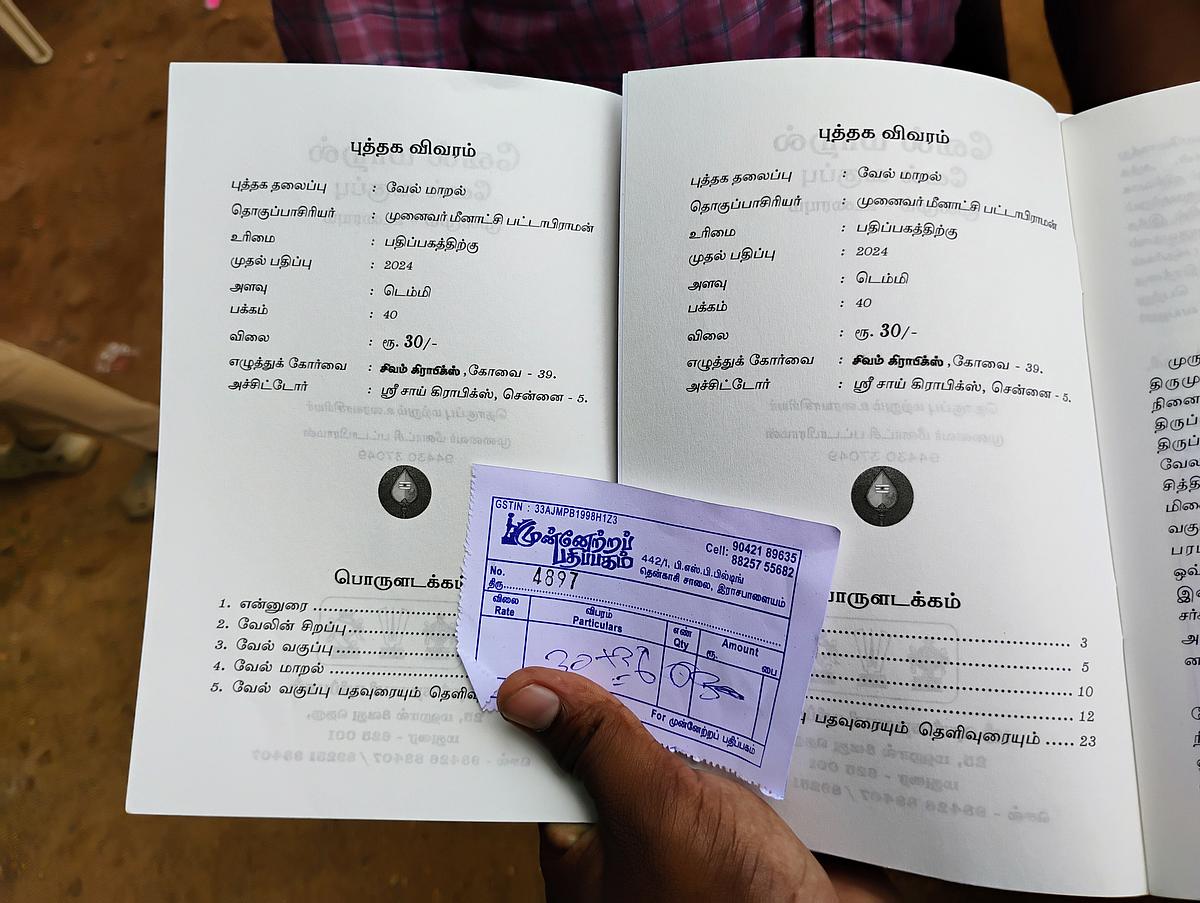 புத்தக விவரம்
புத்தக தலைப்பு : வேல் மாறல்
தொகுப்பாசிரியர் : முனைவர் மீனாட்சி பட்டாபிராமன்
உரிமை : பதிப்பகத்திற்கு
முதல் பதிப்பு : 2024
அளவு : டெம்மி
பக்கம் : 40
விலை : ரூ. 30/-
எழுத்துக் கோர்வை : சிவம் கிராபிக்ஸ் , கோவை - 39.
அச்சிட்டோர் : ஸ்ரீ சாய் கிராபிக்ஸ், சென்னை - 5.
பொருளடக்கம்
1. என்னுரை
2. வேலின் சிறப்பு
3. வேல் வகுப்பு
4. வேல் மாறல்
5. வேல் வகுப்பு பதவுரையும் தெளி
புத்தக விவரம்
புத்தக தலைப்பு : வேல் மாறல்
தொகுப்பாசிரியர் : முனைவர் மீனாட்சி பட்டாபிராமன்
உரிமை : பதிப்பகத்திற்கு
முதல் பதிப்பு : 2024
அளவு : டெம்மி
பக்கம் : 40
விலை : ரூ. 30/-
எழுத்துக் கோர்வை : சிவம் கிராபிக்ஸ் , கோவை - 39.
அச்சிட்டோர் : ஸ்ரீ சாய் கிராபிக்ஸ், சென்னை - 5.
பொருளடக்கம்
3
5
10
12
பதவுரையும் தெளிவுரையும் ..... 23
GSTIN : 33AJMPB1998H1Z3
முன்னேற்றப் பதிப்பகம்
Cell: 90421 89635
88257 55682
442/1, பி.எஸ்.பி.பில்டிங்
தென்காசி சாலை, இராசபாளையம்
No. 4897
திரு
விலை Rate
விபரம் Particulars
எண் Qty
Amount
ரூ. பை
For முன்னேற்றப் பதிப்பகம்